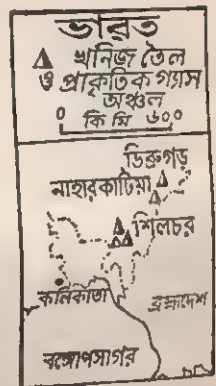 ভারত
খনিজ তৈল
ও প্রাকৃতিক গ্যাস
অঞ্চল
0 কি মি ৬০০
ডিব্রুগড়
নাহারকাটিয়া
শিলচর
কলিকাতা
ব্রহ্মদেশ
বঙ্গোপসাগর